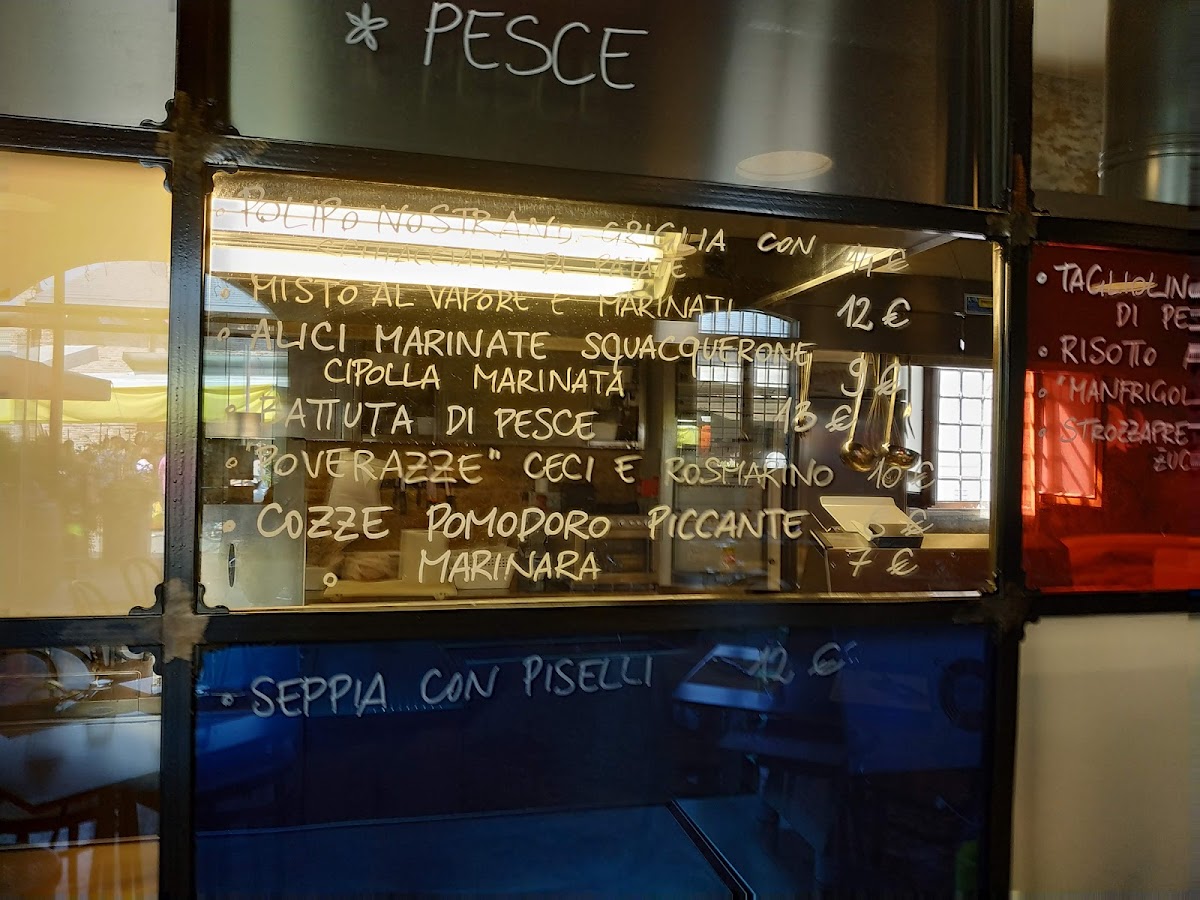 * PESCE
• POLIPO NOSTRANO GRIGLIA CON
SCHIACCIATA DI PATATE €
• MISTO AL VAPORE E MARINATI 12 €
• ALICI MARINATE SQUACQUERONE
CIPOLLA MARINATA 9 €
• BATTUTA DI PESCE 13 €
• "POVERAZZE" CECI E ROSMARINO 10 €
• COZZE POMODORO PICCANTE €
° MARINARA 7 €
• SEPPIA CON PISELLI 12 €
• TAGLIOLIN
DI PES
• RISOTTO
• "MANFRIGOL
• STROZZAPRET
ZUC